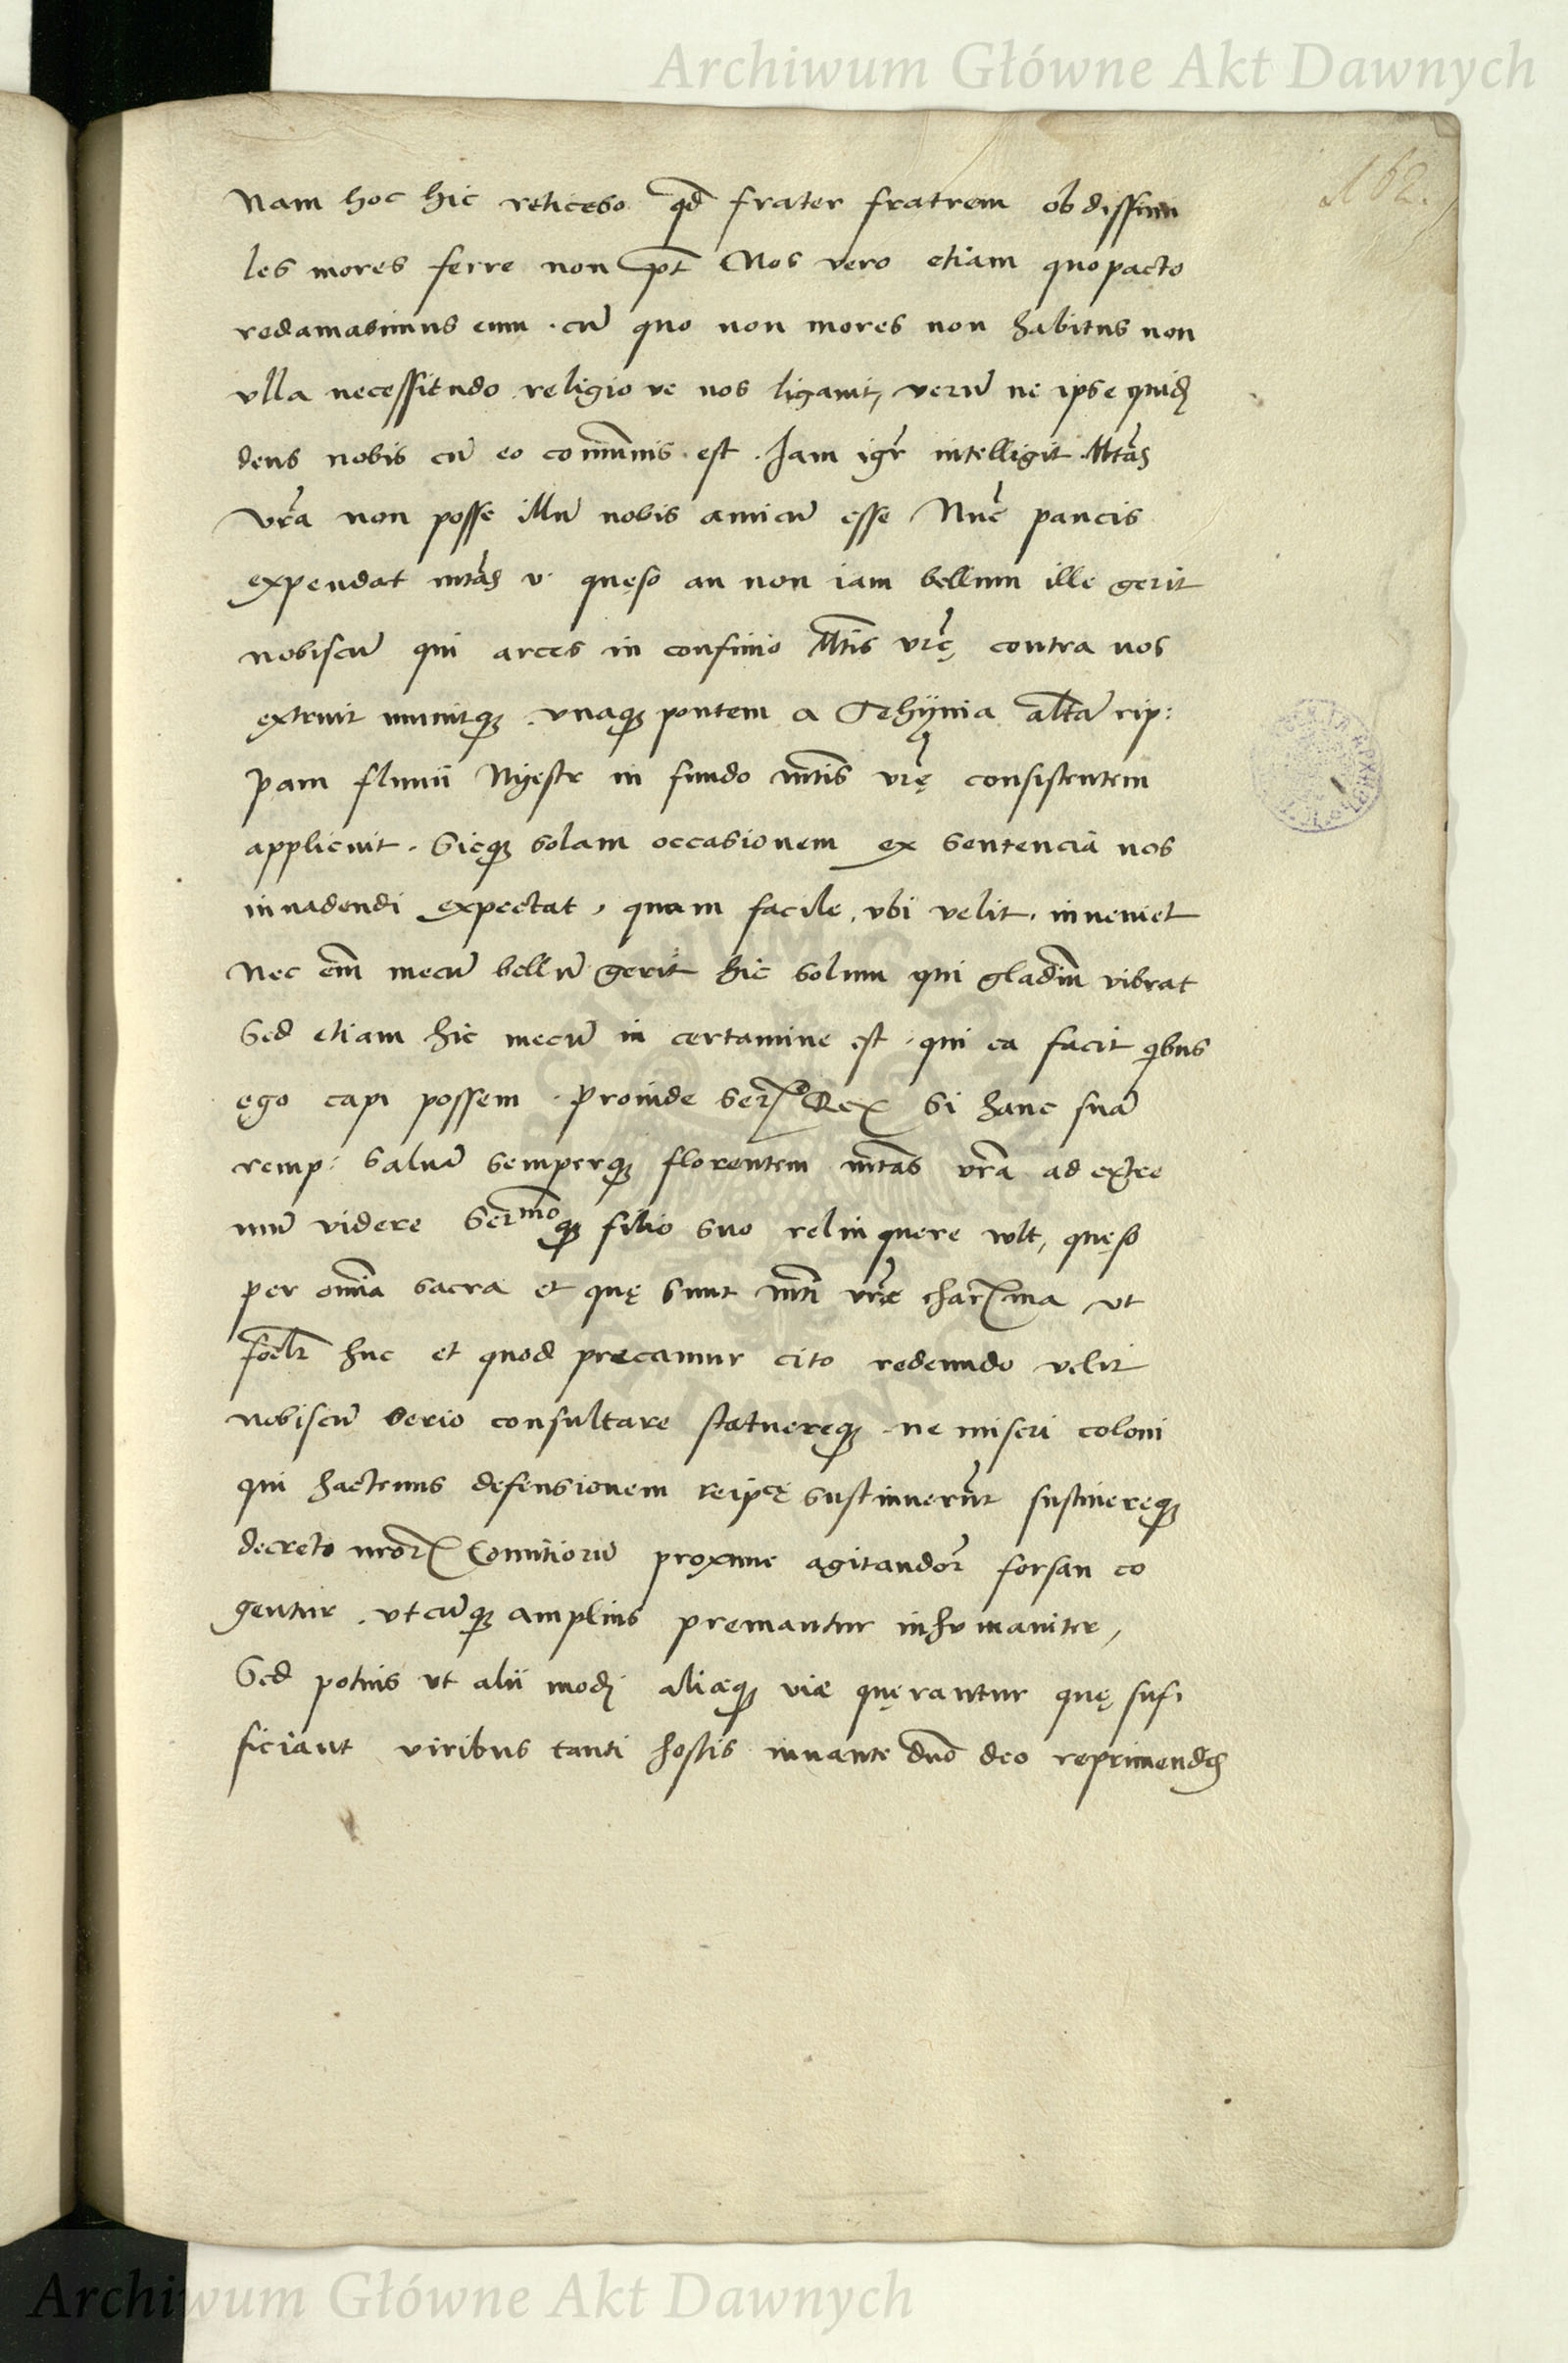 Archiwum Główne Akt Dawnych
162.
Nam hoc hic reticebo qđ frater fratrem ob dissimi
les mores ferre non pt Nos vero etiam quo pacto
redamabimus eum . cū quo non mores non habitus non
ulla necessitudo religio ve nos ligavit, verū ne ipse quidē
deus nobis cū eo comunis est . Jam igr intelligit Mtas
vra non posse illū nobis amicū esse Nūc paucis
expendat mtas v. quęso an non iam bellum ille gerit
nobiscū qui arces in confinio Mtis vrę contra nos
extruit munitq; . unaq; pontem a Tehÿnia altā rip:
pam fluvii Nÿestr in fundo mtis vrę consistentem
applicuit . Sicq; solam occasionem ex sentencia nos
invadendi expectat , quam facile , ubi velit , inveniet
Nec em mecū bellū gerit hic solum qui gladiū vibrat
Sed etiam hic mecū in certamine est , qui ea facit qibus
ego capi possem . Proinde Ser. Rex Si hanc suā
remp: salvā semperq; florentem mtas vra ad extre
mū videre Sermoq; filio suo relinquere vult, quęso
per omia sacra et quę sunt mti vrę char.ma ut
foelr huc et quod precamur cito redeundo velit
nobiscū serio consultare statuereq; . ne miseri coloni
qui hactenus defensionem reipcę sustinuerūt sustinereq;
decreto nror. Comitiorū proxime agitandor. forsan co
gentur . utcūq; amplius premantur inhumaniter,
Sed potius ut alii modi aliæq; viæ quęrantur quę suf,
ficiant viribus tanti hostis iuvante dno deo reprimendis
Archiwum Główne Akt Dawnych